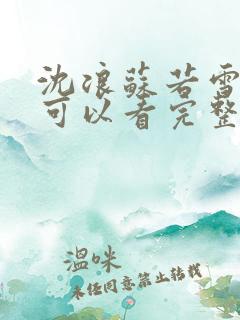 沈浪蘇若雪
可以看完整
温咪
未经同意禁止转载